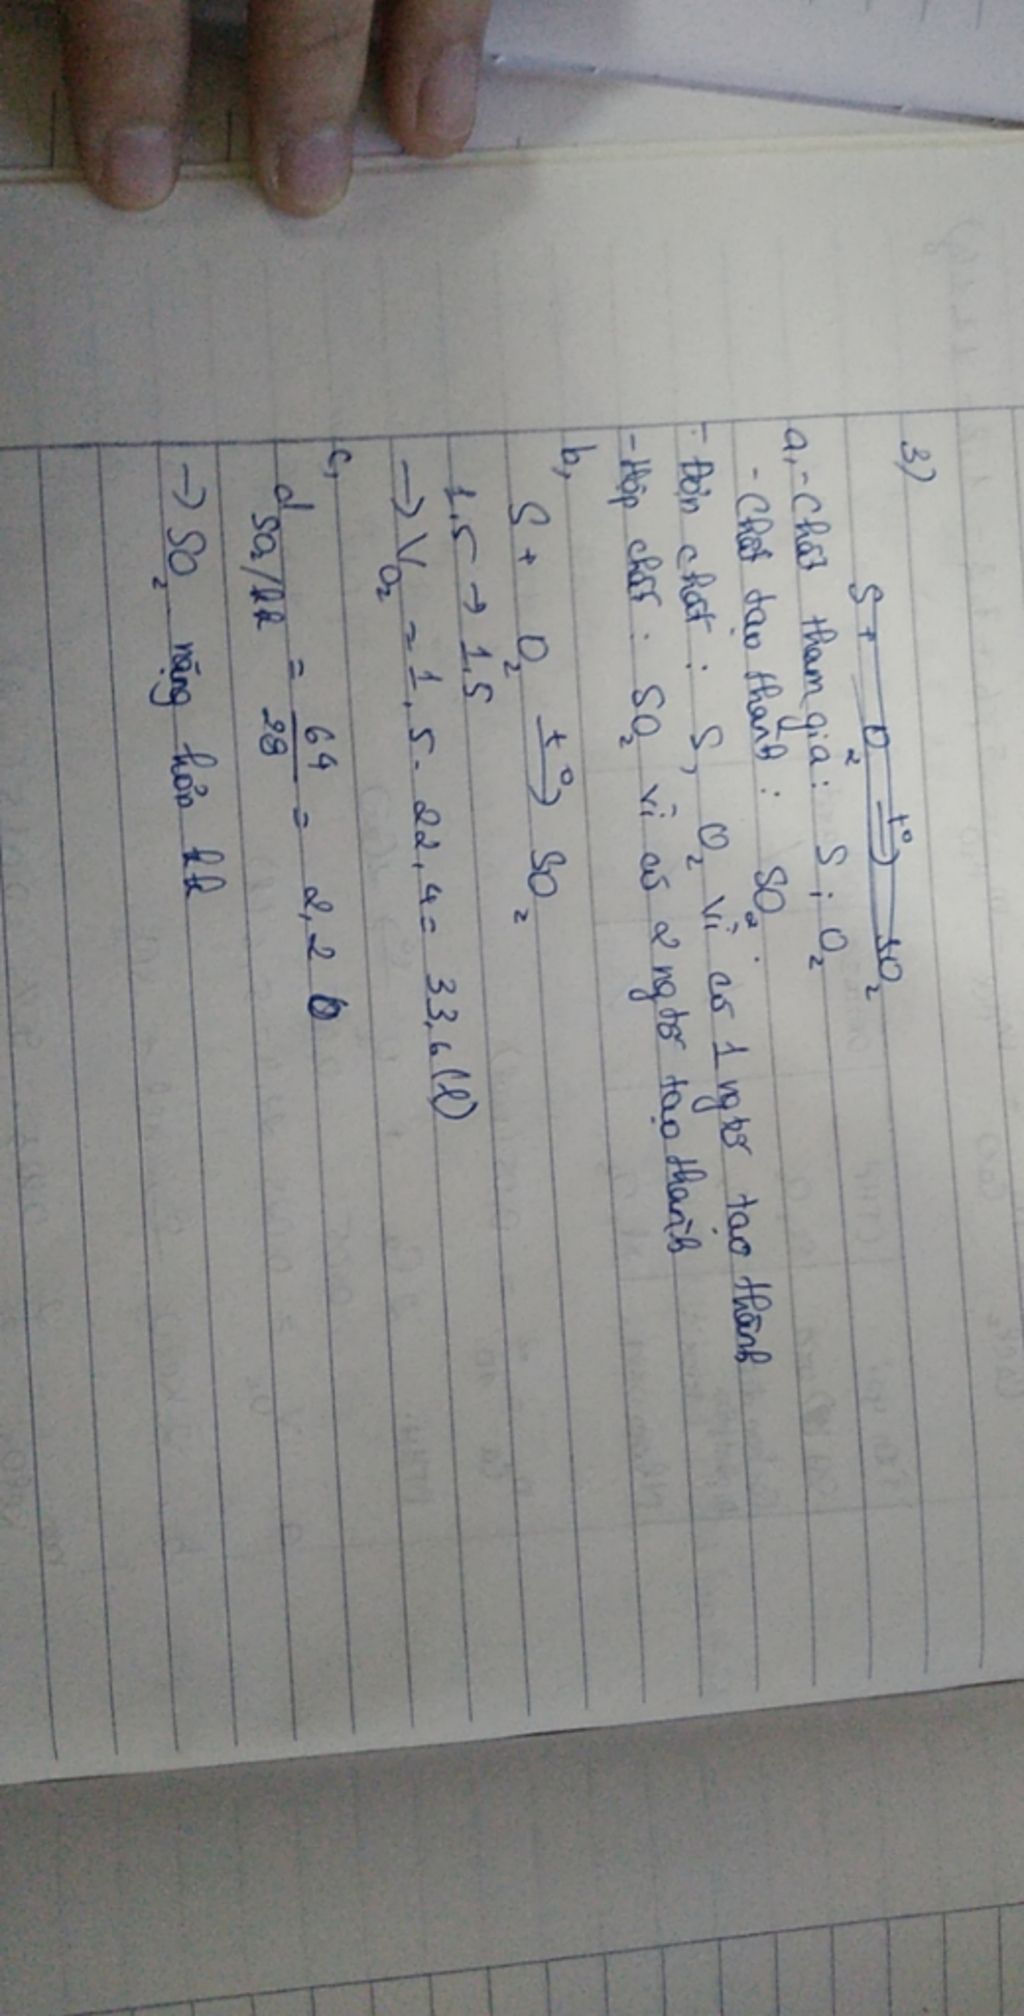 3)
S + O₂ t° → SO₂
a, - Chất tham gia : S ; O₂
- Chất tạo thành : SO₂.
- Đơn chất : S, O₂ vì có 1 ngtố tạo thành
- Hợp chất : SO₂ vì có 2 ngtố tạo thành
b,
S + O₂ t° → SO₂
1,5 → 1,5
→ V O₂ = 1,5. 22,4 = 33,6 (l)
c,
d SO₂/kk = 64/29 = 2,2
→ SO₂ nặng hơn kk